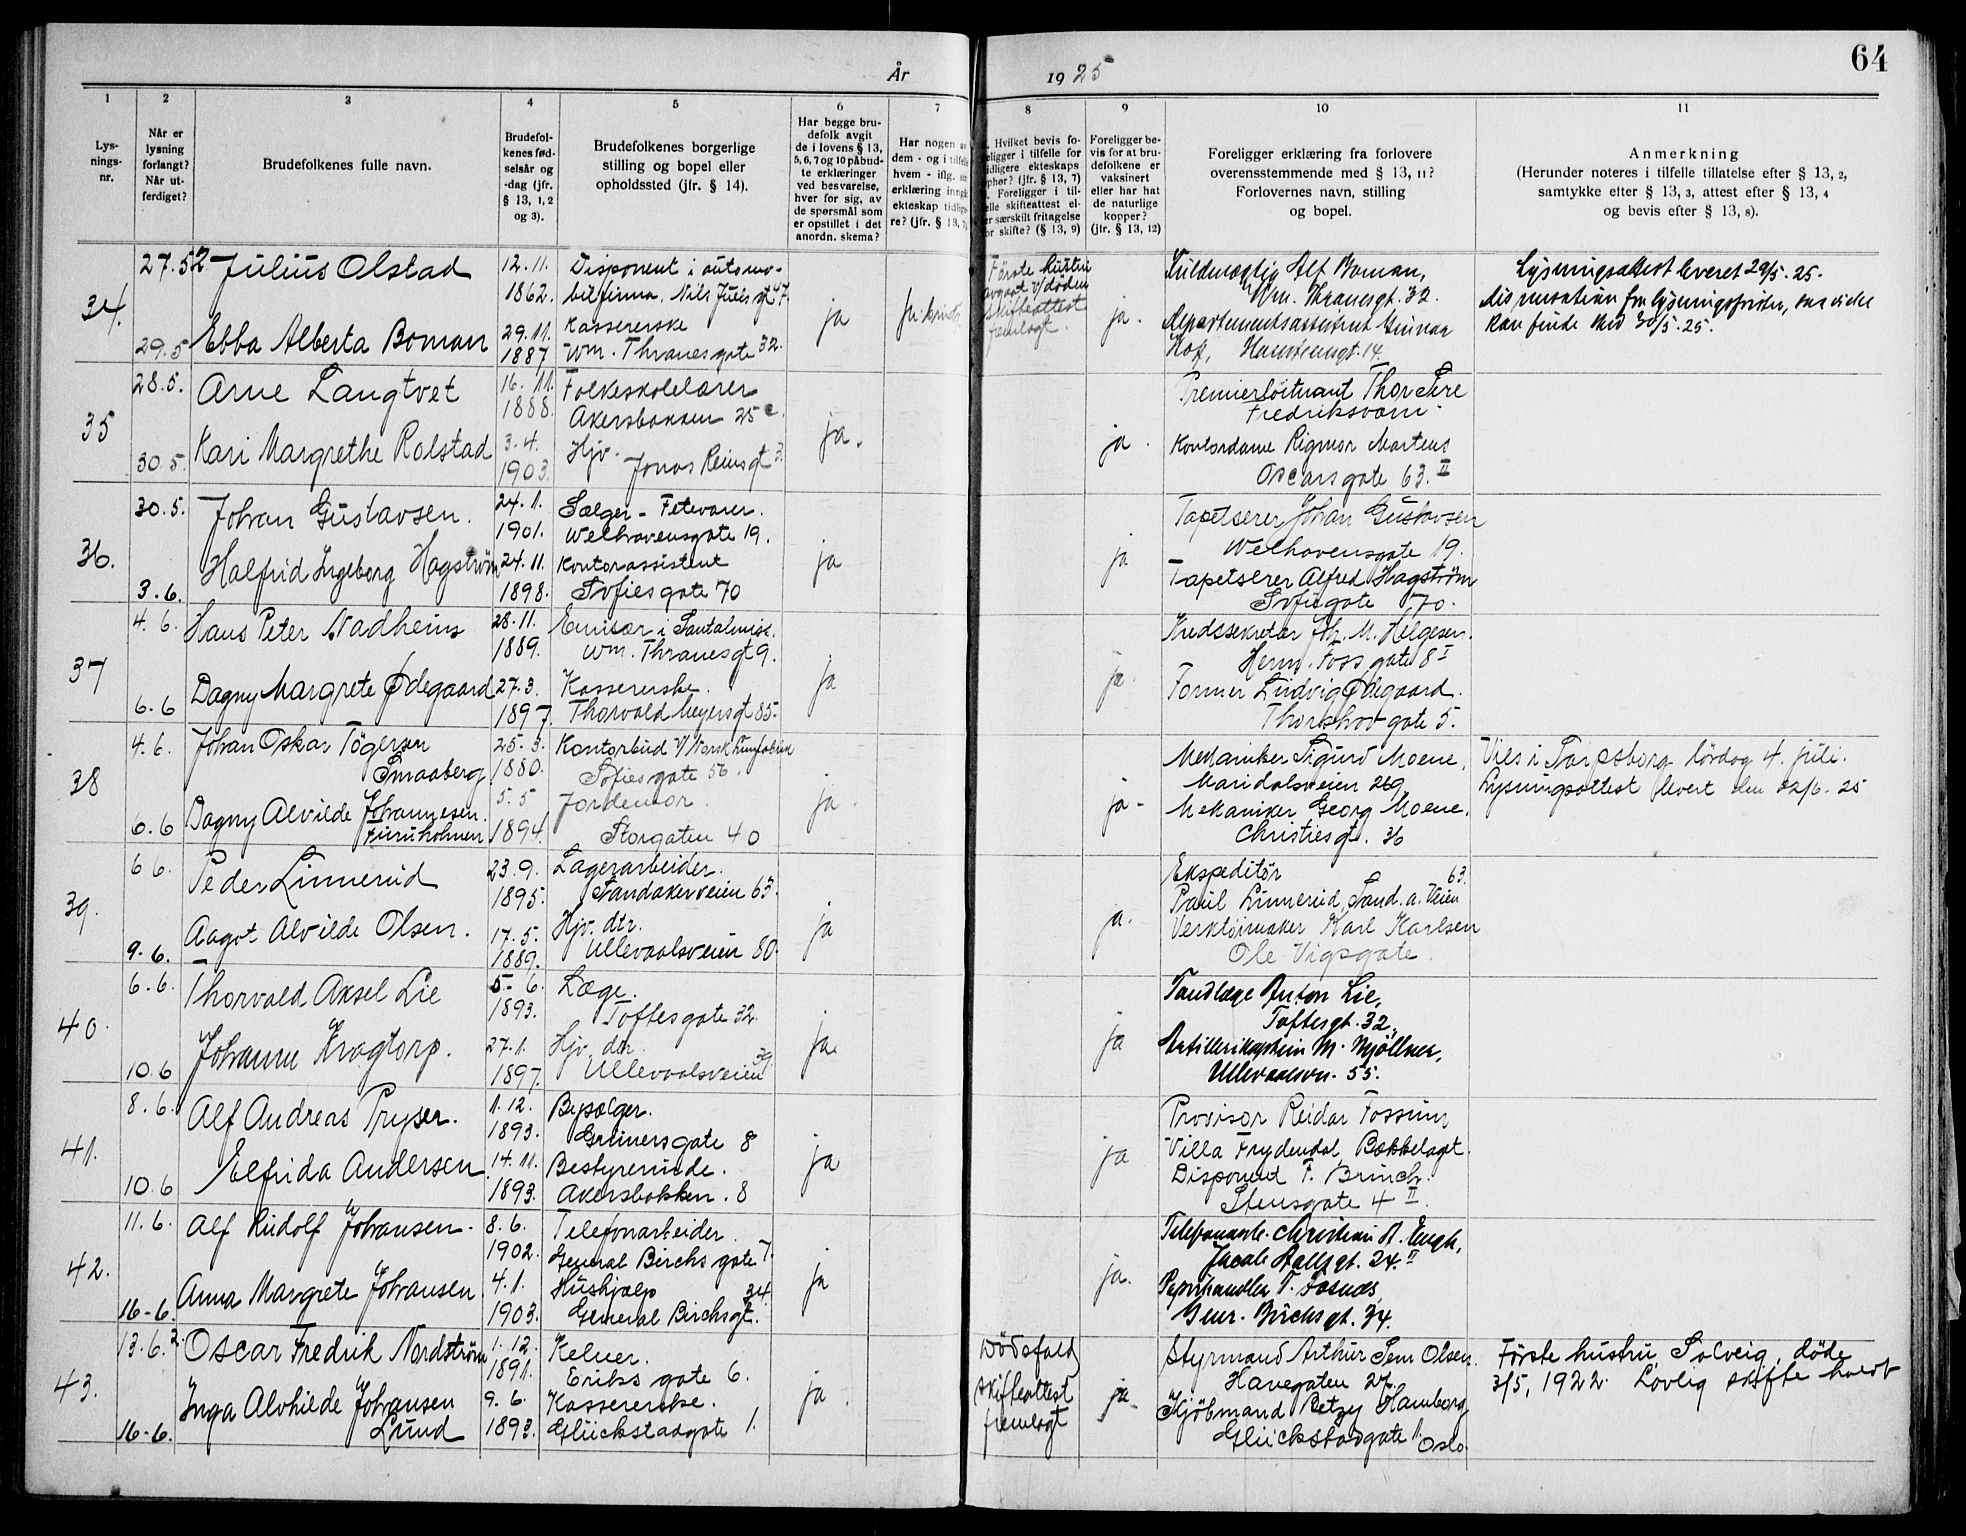 År 1925
64
1
2
3
4
5
6
7
8
9
10
11
Lys-
nings-
nr.
Når er
lysning
forlangt?
Når ut-
ferdiget?
Brudefolkenes fulle navn.
Brudefol-
kenes fød-
selsår og
-dag (jfr.
§ 13, 1, 2
og 3).
Brudefolkenes borgerlige
stilling og bopel eller
opholdssted (jfr. § 14).
Har begge bru-
defolk avgit
de i lovens § 13,
5, 6, 7 og 10 påbud-
te erklæringer
ved besvarelse,
hver for sig, av
de spørsmål som
er opstillet i det
anordn. skema?
Har nogen
dem - og i tilfelle
hvem - iflg.
erklæring
ekteskap tidlig
re? (jfr. § 13,
Hvilket bevis fo-
religger i tilfelle for
tidligere ekteskaps
ophør? (jfr. § 13, 7)
Foreligger i til-
felle skifteattest el-
ler særskilt fritagelse
for skifte? (§ 13, 9)
Foreligger be-
vis for at bru-
defolkene er
vaksinert
eller har hat
de naturlige
kopper?
(jfr. § 13, 12)
Foreligger erklæring fra forlovere
overensstemmende med § 13, 11?
Forlovernes navn, stilling
og bopel.
Anmerkning
(Herunder noteres i tilfelle tillatelse efter § 13, 2,
samtykke efter § 13, 3, attest efter § 13, 4
og bevis efter § 13, 8).
34.
27.5
29.5
2 Julius Olstad
Ebba Alberta Boman
12.11.
1862.
29.11.
1887
Disponent i automo-
bilfirma. Nils Juels gt 47.
Kassererske
Wm. Thranes gate 32.
ja
Første hustru
avgaat v/ døden
skifteattest
fremlagt.
ja.
Fuldmægtig Alf Boman,
Wm. Thranesgt. 32.
Departementsassistent Gunnar
Hof, 14.
Lysningsattest leveret 29/5. 25.
dispensation for lysningsfristen,
kan finde sted 30/5. 25.
35
28.5.
30.5.
Arne Langtvet
Kari Margrethe Rolstad
16.11.
1888.
3.4.
1903.
Folkeskolelærer
Akersbakken 25 c.
Hjv.
Jonas Reins gt 3.
ja.
ja.
Premierløitnant Thor
Fredriksvern.
Kontordame Rigmor Martens
Oscarsgate 63. II
36.
30.5.
3.6.
Johan Gustavsen.
Halfrid Ingeborg Hagström
24.1.
1901.
24.11.
1898.
Sælger - Fetevarer.
Welhavensgate 19.
Kontorassistent
Sofies gate 70
ja
ja
Tapetserer Johan Gustavsen
Welhavensgate 19.
Tapetserer Alfred Hagström
Sofiegate 70.
37
4.6.
6.6
Hans Peter Nadheim
Dagny Margrete Ødegaard
28.11.
1889.
27.3.
1897.
Emisær i Santalmisj.
Wm. Thranes gt 9.
Kassererske.
Thorvald Meyers gt 85.
ja
ja.
Kredssekretær Joh. M. Helgesen.
Herm. Foss gate 8 I
Former Ludvig Ødegaard.
Thorshov gate 5.
38
4.6.
6.6
Johan Oskar Tögersen
Smaaberg
Dagny Alvilde Johannesen.
Furuholmen
25.3.
1880.
5.5
1894.
Kontorbud v/ Norsk
Sofies gate 56.
Jordemor.
Storgaten 40
ja.
ja-
Mekaniker Sigurd Moene.
Maridalsveien 269
Mekaniker Georg Moene.
Christies gt. 36
Vies i Sarpsborg lördag 4. juli.
Lysningsattest levert den 22/6. 25
39.
6 6.
9.6.
Peder Linnerud
Aagot Alvilde Olsen.
23.9.
1895.
17.5.
1889.
Lagerarbeider.
Sandakerveien 63.
Hjv. dtr.
Ullevaalsveien 80.
ja
ja.
Ekspeditör
63.
Paul Linnerud, Sand. a. Veien
Verktöimaker Karl Karlsen
Ole Vigsgate.
40.
6.6.
10.6
Thorvald Aksel Lie
Johanne Kragtorp.
5.6.
1893.
27.1.
1897.
Læge.
Toftesgate 32.
Hjv. dtr.
Ullevaalsveien 39.
ja
ja
Tandlæge Anton Lie,
Toftesgt. 32.
Artillerikaptein M. Mjöllner,
Ullevaalsvn. 55.
41.
8.6.
10.6
Alf Andreas Pryser.
Elfrida Andersen
1.12.
1893.
14.11.
1893.
Bysælger.
Grünersgate 8
Bestyrerinde.
Akersbakken. 8
ja
ja
Provisor Reidar Fossum
Villa Frydendal, Bækkelaget.
Disponent F. Brinch.
Stensgate 4 II.
42.
11.6.
16-6.
Alf Rudolf Johansen.
Anna Margrete Johansen
8.6.
1902.
4.1.
1903.
Telefonarbeider.
General Birchs gate 7.
Hushjælp
34.
General Birchsgt.
ja
ja.
Telefonarb. Christian A. Engh,
Jacob Aallsgt. 24. II
Papirhandler T. Fosnæs,
Gener. Birchsgt. 34.
43.
13.6.
16-6.
2. Oscar Fredrik Nordström
Inga Alvhilde Johansen
Lund
1.12.
1891.
9.6.
1893.
Kelner.
Eriks gate 6.
Kassererske.
Glückstadgate 1.
ja.
Dödsfald
skifteattest
fremlagt
ja.
Styrmand Arthur Sem Olsen.
Havegaten 27.
Kjöbmand Betzy Hamborg
Glückstadgate 1. Oslo.
Förste hustru, Solveig, döde
3/5, 1922. Lovlig skifte holdt